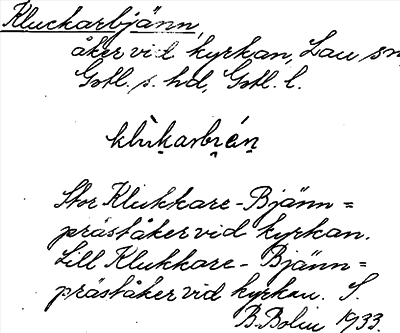 Kluckarbjänn,
åker vid kyrkan, Lau sn
Gotl. s. hd, Gotl. l.
klùk̬arbι̯én̥
Stor Klukkare-Bjänn=
präståker vid kyrkan.
Lill Klukkare-Bjänn=
präståker vid kyrkan. S.
B. Bolin 1933.